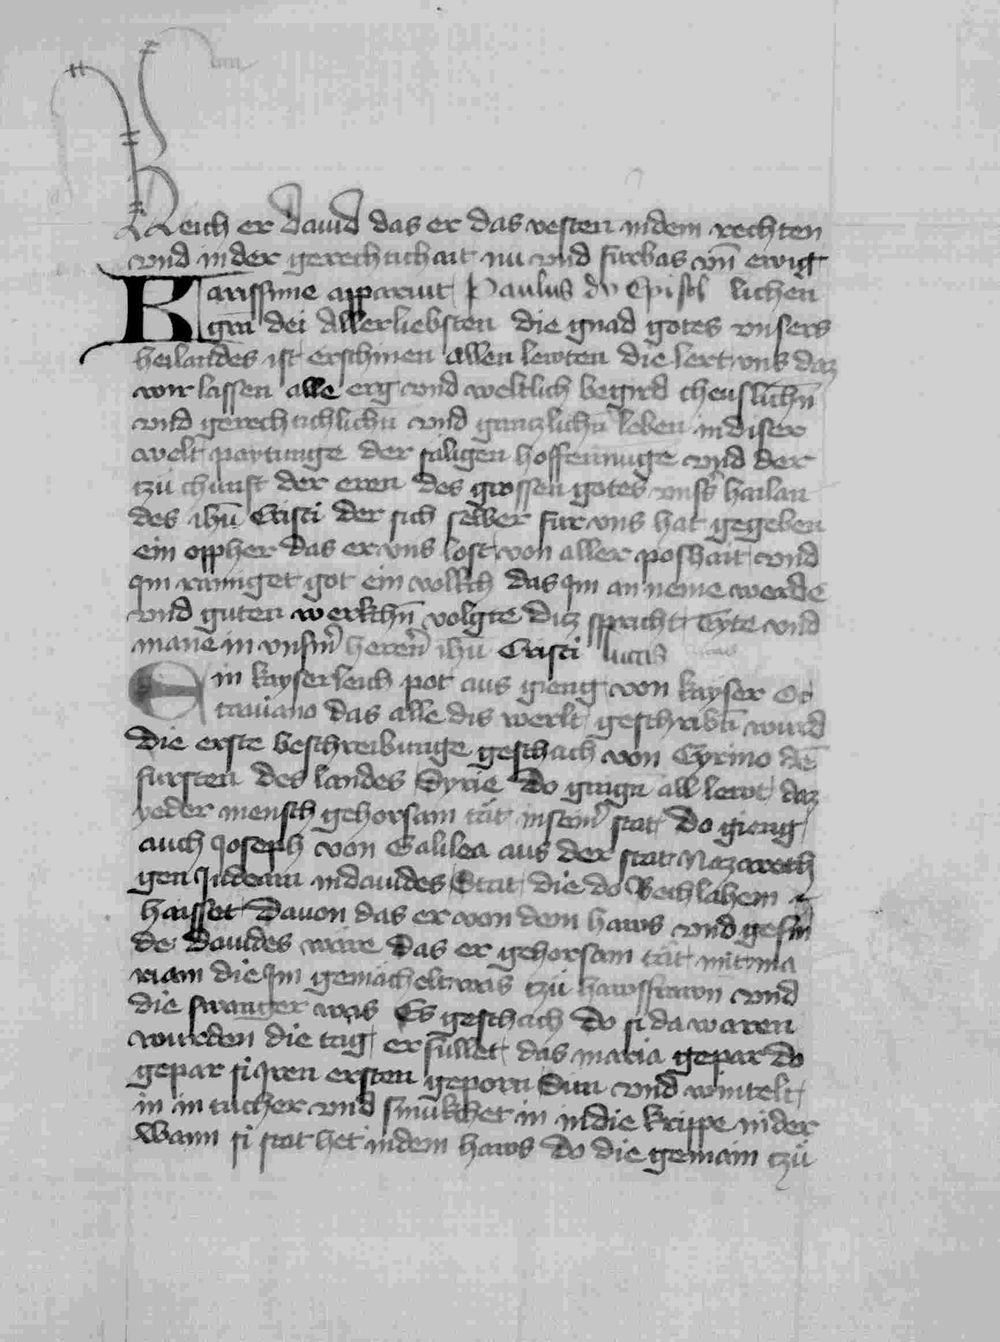 Reich er dauid das er das vesten in dem rechten
vnd in der gerechtichait nu vnd furbas vnd ewig
Karissime apparuit Paulus dy Epistl lichen
gra dei Allerliebsten die gnad gotes vnsers
heilandes ist erschinen allen lewten die lert vns daz
wir lassen alle erg vnd weltlich begird cheuslichn
vnd gerechtichlichn vnd gantzlichn leben in diser
welt paytunge der saligen hoffennuge vnd der
tzu chunft der eren des grossen gotes vnsers hailan
des ihu Cristi der sich selber fur vns hat gegeben
ein oppher das er vns lost von aller poshait vnd
im rainiget got ein vollkch das im an neme werde
vnd guten werkchn volgte ditz spricht Tyte vnd
mane in vnserm heren ihu Cristi lucas
Ein kayserleich pot aus gieng von kayser Oc
tauiano das alle dis werlt geschribn wurd
die erste beschreibunge geschach von Cyrino dem
fursten des landes Syrie do gingn all lewt daz
yeder mensch gehorsam tät in seiner stat Do gieng
auch Joseph von Galilea aus der stat Nazareth
gen Judeam in dauides Stat die do Bethlahem
haisset Dauon das er von dem haws vnd gesin
de dauides wäre das er gehorsam tät mit ma
riam die im gemächelt was tzu hawsfrawn vnd
die swanger was Es geschach do si da waren
wurden die tag erfullet das maria gepar do
gepar si iren ersten geporn Sun vnd wintelt
in in tucher vnd smukchet in in die krippe nider
Wann si stat het in dem haws do die gemain tzu